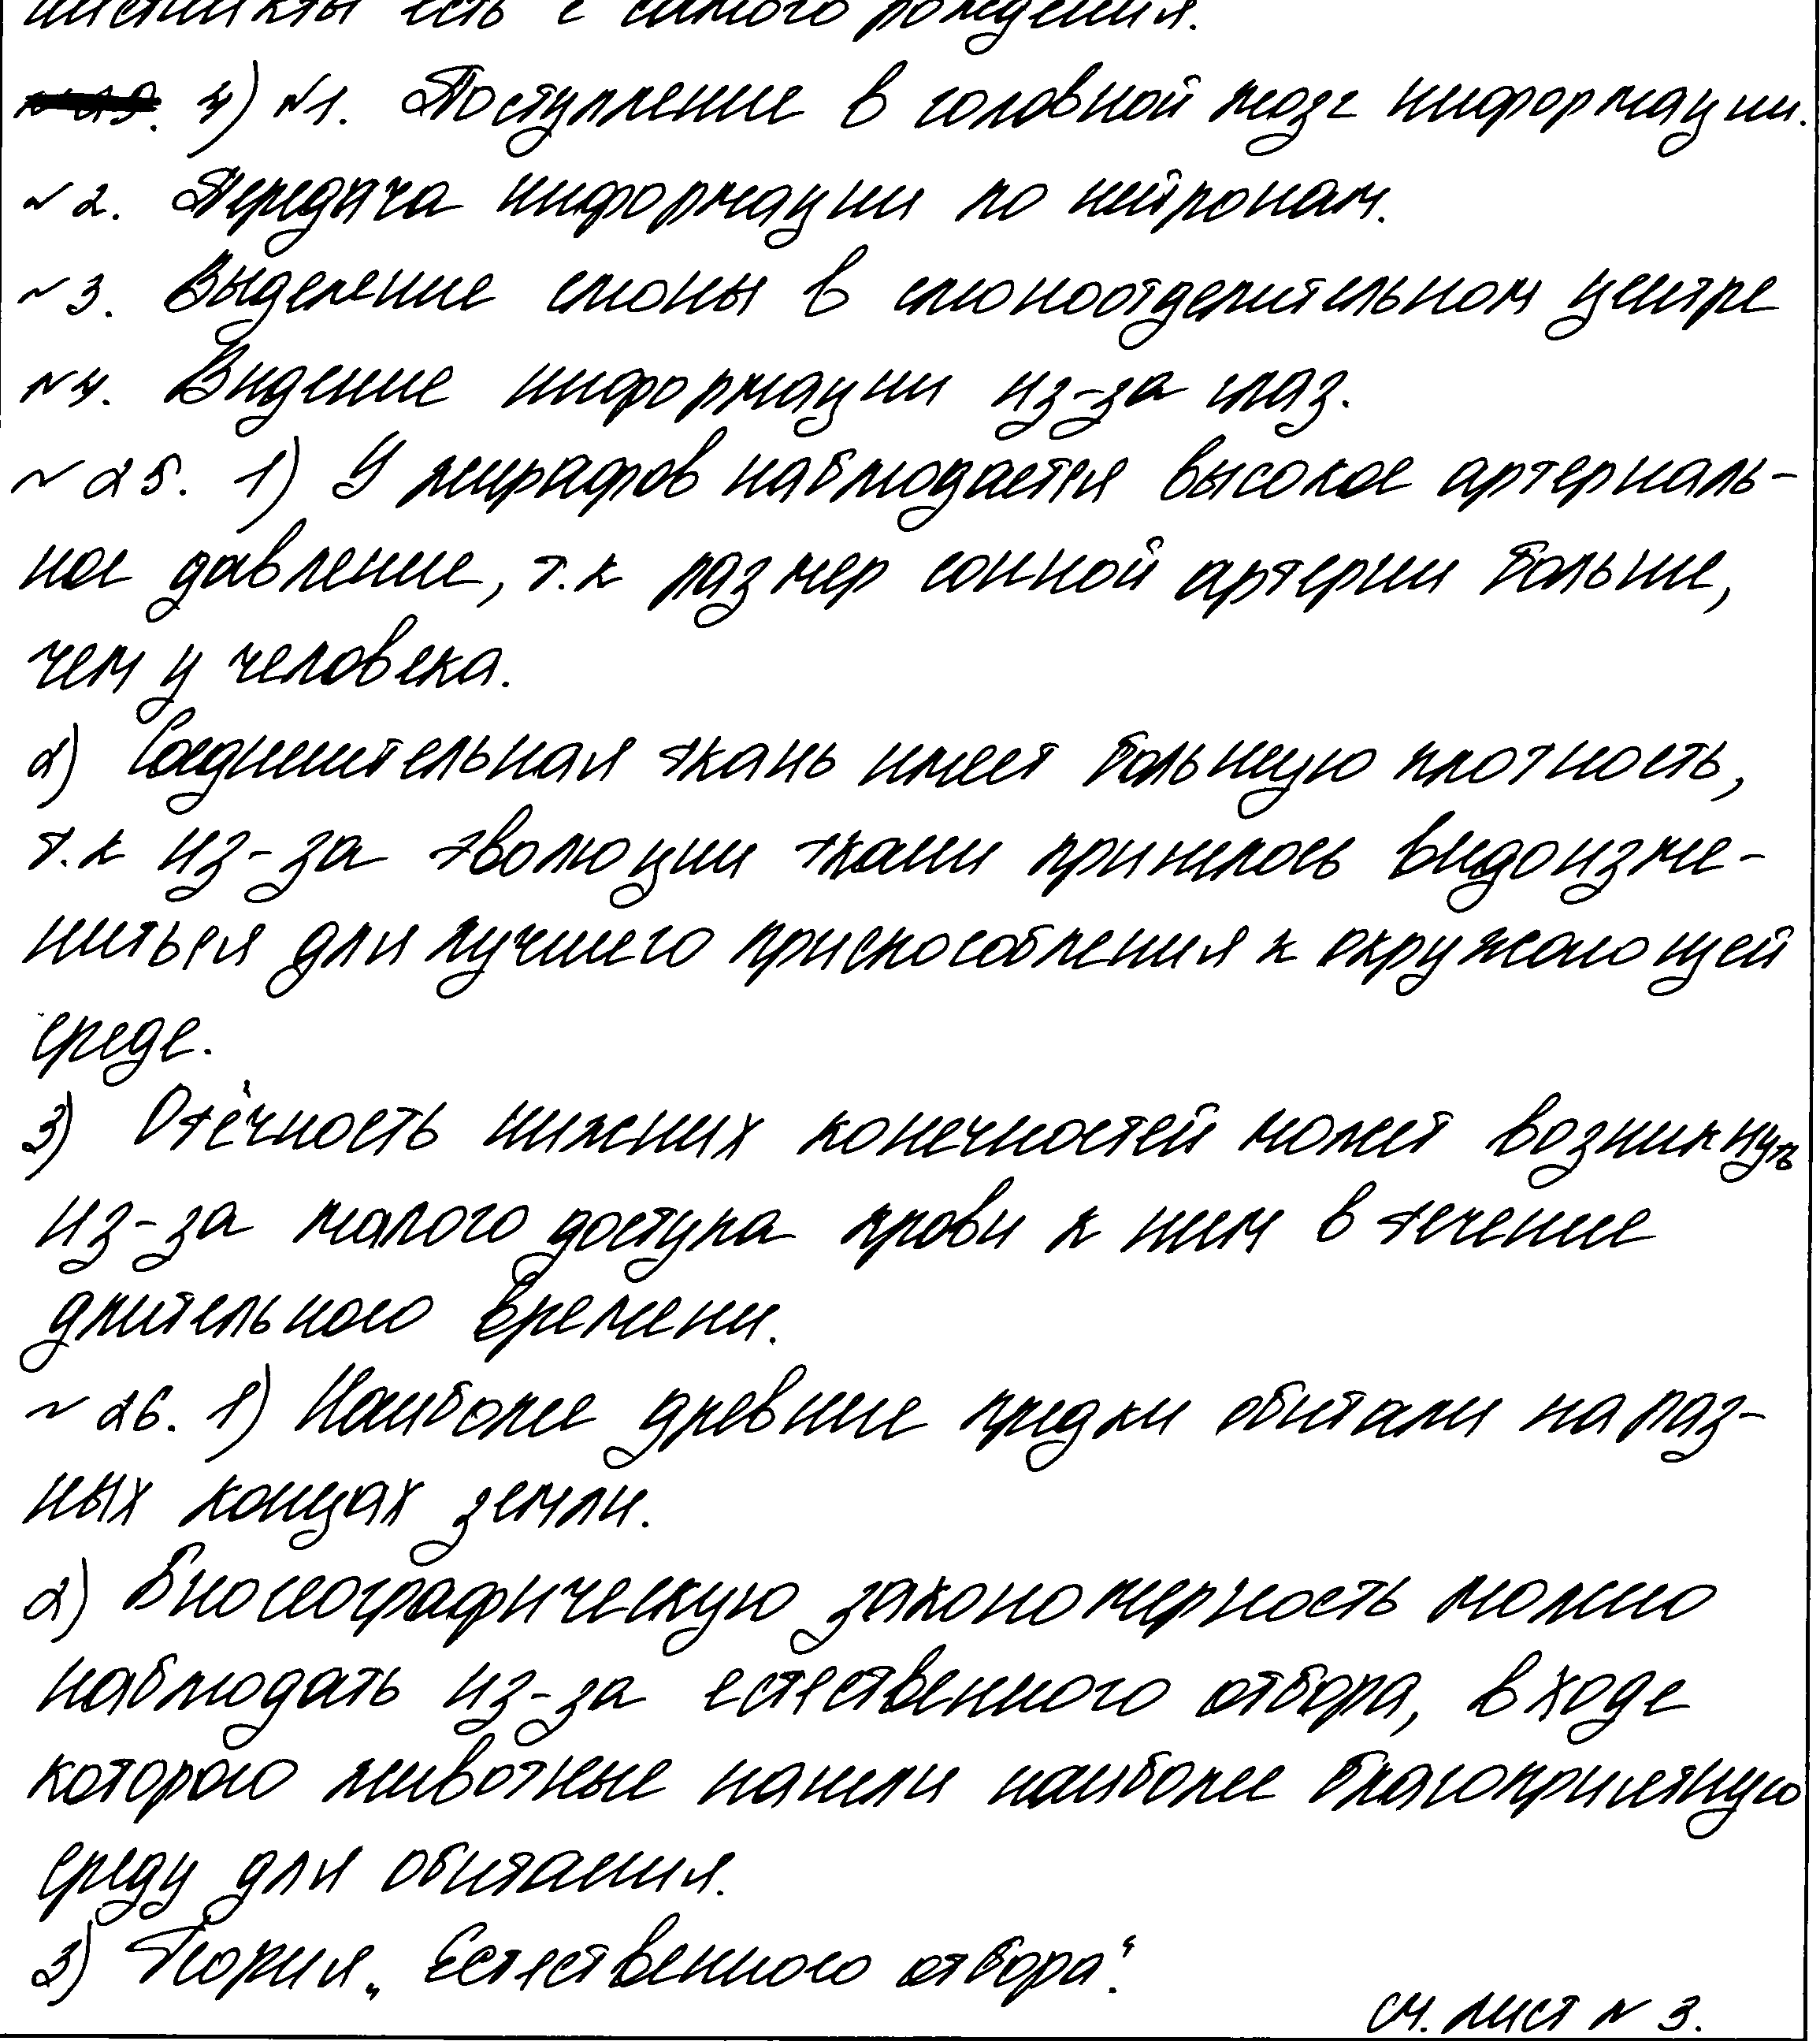 инстинкты есть с самого рождения.
4) №1. Поступление в головной мозг информации.
№2. Передача информации по нейронам.
№3. Выделение слюны в слюноотделительном центре
№4. Видение информации из-за глаз.
№25. 1) У жирафов наблюдается высокое артериаль-
ное давление, т.к размер сонной артерии больше,
чем у человека.
2) Соединительная ткань имеет большую плотность,
т.к из-за эволюции ткани пришлось видоизме-
ниться для лучшего приспособления к окружающей
среде.
3) Отёчность нижних конечностей может возникнуть
из-за малого доступа крови к ним в течение
длительного времени.
№26. 1) Наиболее древние предки обитали на раз-
ных концах земли.
2) Биогеографическую закономерность можно
наблюдать из-за естественного отбора, в ходе
которого животные нашли наиболее благоприятную
среду для обитания.
3) Теория „Естественного отбора".
см. лист №3.